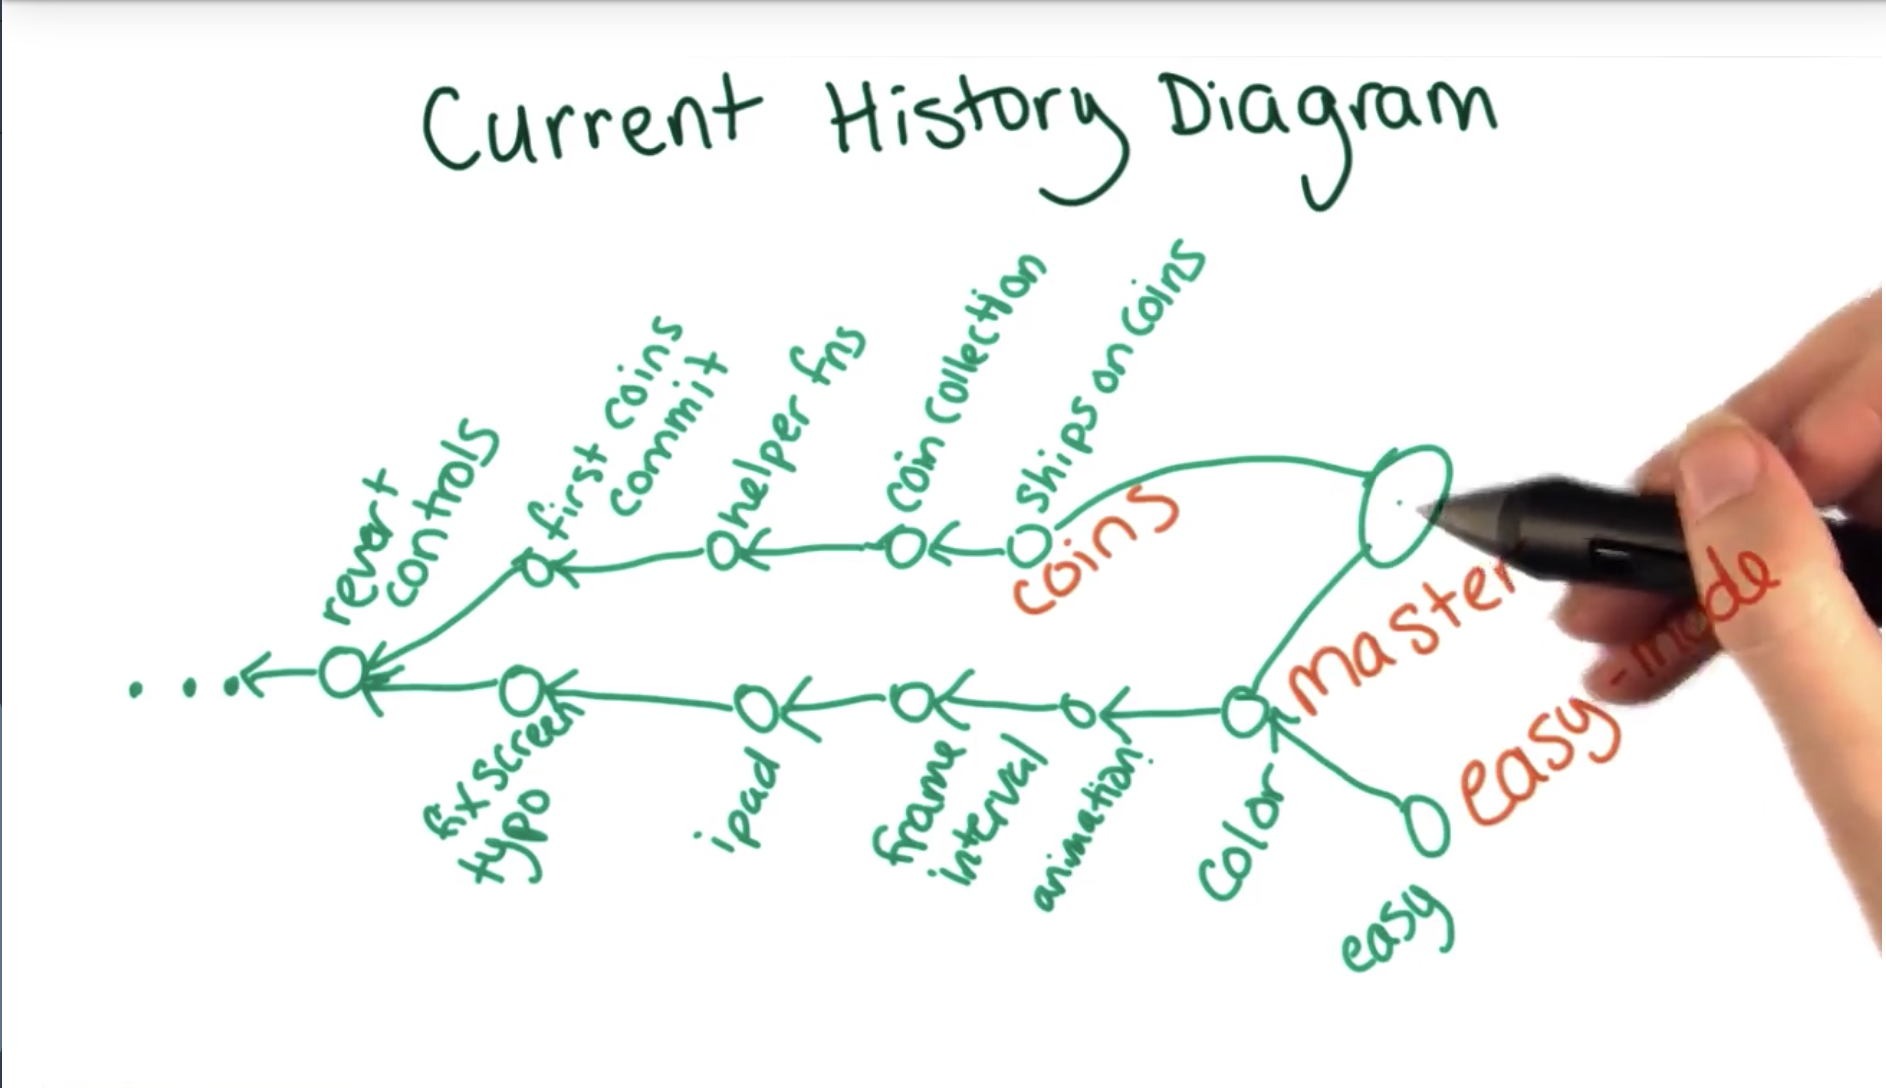 Current History Diagram
revert
controls
first coins
commit
helper fns
coin collection
ships on coins
coins
master
easy-mode
fix screen
typo
ipad
frame
interval
animation
color
easy